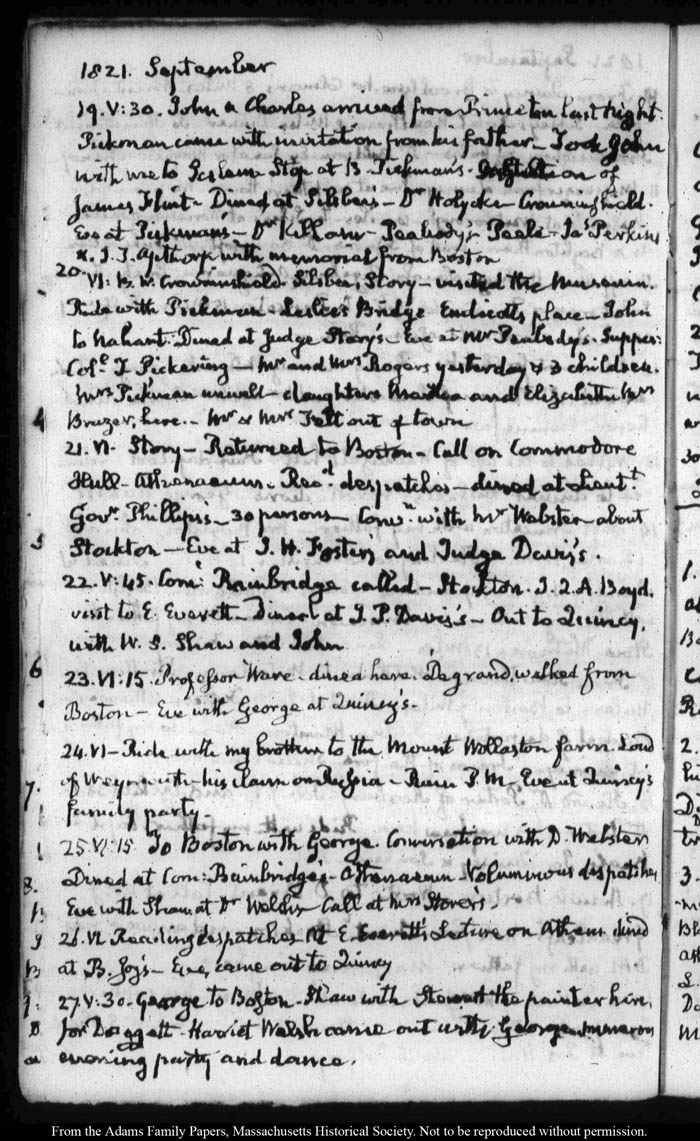 1821. September
19. V:30. John & Charles arrived from Princeton last night.
Pickman came with invitation from his father - Took John
with me to Salem. Stop at B. Pickman's - of
James Flint - Dined at Silsbee's - Dr Holyoke - Crowninshield.
Eve at Pickman's - Dr Kilham - Peabody's - Peele - Jas Perkins
& J. T. Apthorp with memorial from Boston
20. VI: B. W. Crowninshield. Silsbee, Story - visited the Museum.
Ride with Pickman - Leslie's Bridge Endicott's place - John
to Nahant. Dined at Judge Story's - Eve at Mr Peabody's. Supper:
Coll T Pickering - Mr and Mrs Rogers yesterday & 3 children.
Mrs Pickman unwell - daughters Martha and Elizabeth Mrs
Brazer, here - Mr & Mrs Felt out of town
21. VI. Story - Returned to Boston - Call on Commodore
Hull - Athenaeum - Recd despatches - dined at Lieutt
Govr Phillips's - 30 persons - Convn with Mr Webster about
Stockton - Eve at J. H. Foster's and Judge Davis's.
22. V:45. Com: Bainbridge called - Stockton. J. Q. A. Boyd.
visit to E. Everett - Dined at J. P. Davis's - Out to Quincy,
with W. S. Shaw and John
23. VI:15. Professor Ware - dined here. Degrand, walked from
Boston - Eve with George at Quincy's.
24. VI - Ride with my brother to the Mount Wollaston farm. Loud
of Weymouth - his claim on Russia - Rain P. M - Eve at Quincy's
family party -
25. VI:15 To Boston with George. Conversation with D. Webster
Dined at Com: Bainbridge's - Athenaeum Voluminous despatches
Eve with Shaw at Dr Welsh's Call at Mrs Storer's.
26. VI. Reading despatches At E. Everett's Lecture on Athens dined
at B. Joy's - Eve, came out to Quincy
27. V:30. George to Boston. Shaw with Stewart the painter here,
for Doggett. Harriet Welsh came out with George
evening party and dance.
From the Adams Family Papers, Massachusetts Historical Society. Not to be reproduced without permission.